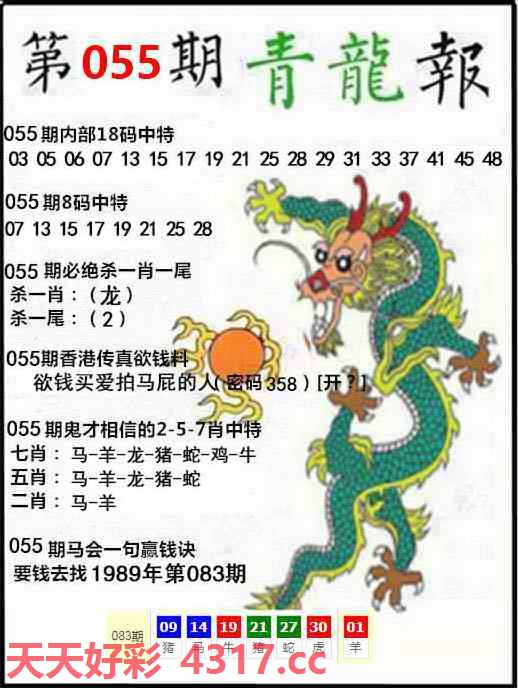 第055期 青龍報
055期内部18码中特
03 05 06 07 13 15 17 19 21 25 28 29 31 33 37 41 45 48
055期8码中特
07 13 15 17 19 21 25 28
055期必绝杀一肖一尾
杀一肖：（龙）
杀一尾：（2）
055期香港传真欲钱料
欲钱买爱拍马屁的人(密码358)[开?]
055期鬼才相信的2-5-7肖中特
七肖：马-羊-龙-猪-蛇-鸡-牛
五肖：马-羊-龙-猪-蛇
二肖：马-羊
055期马会一句赢钱诀
要钱去找1989年第083期
083期 09 14 19 21 27 30 01
猪 马 牛 猪 蛇 虎 羊
天天好彩 4317.cc